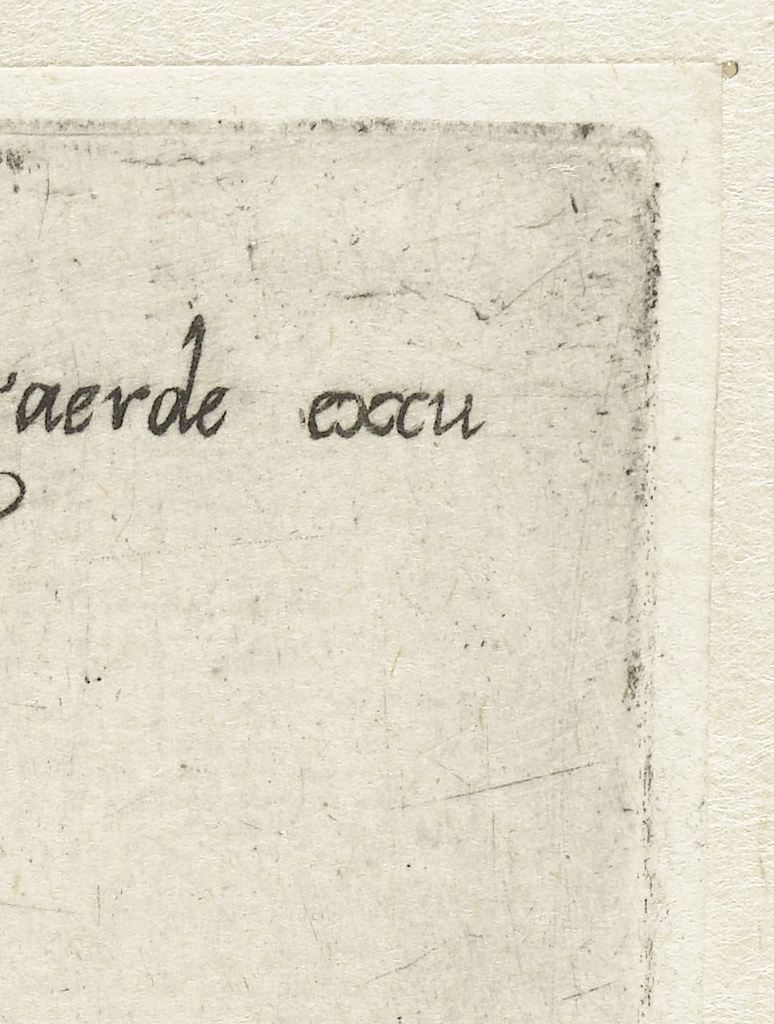 raerde excu